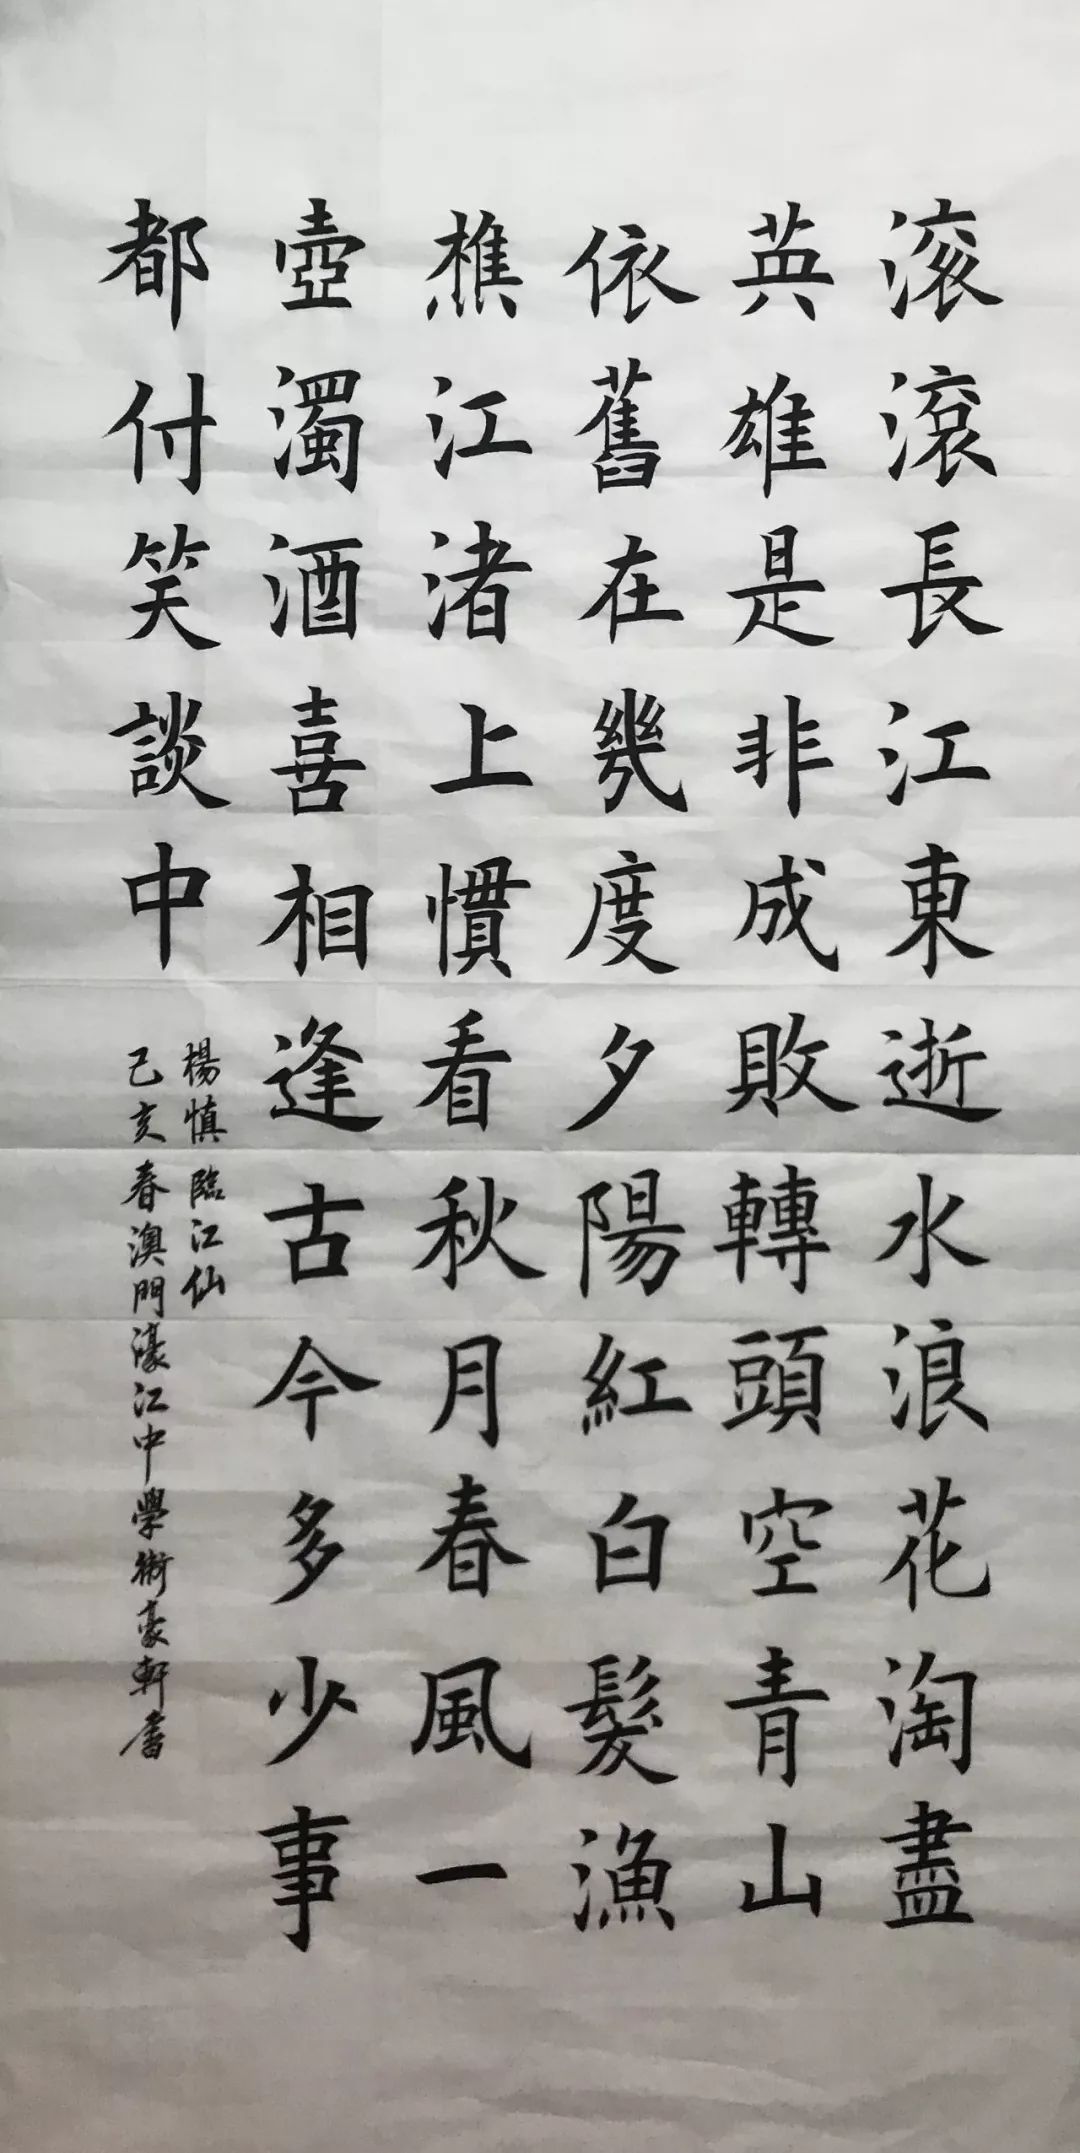 滚滾長江東逝水浪花淘盡
英雄是非成敗轉頭空青山
依舊在幾度夕陽紅白髮漁
樵江渚上慣看秋月春風一
壺濁酒喜相逢古今多少事
都付笑談中
楊慎臨江仙
己亥春澳門濠江中學術豪軒書